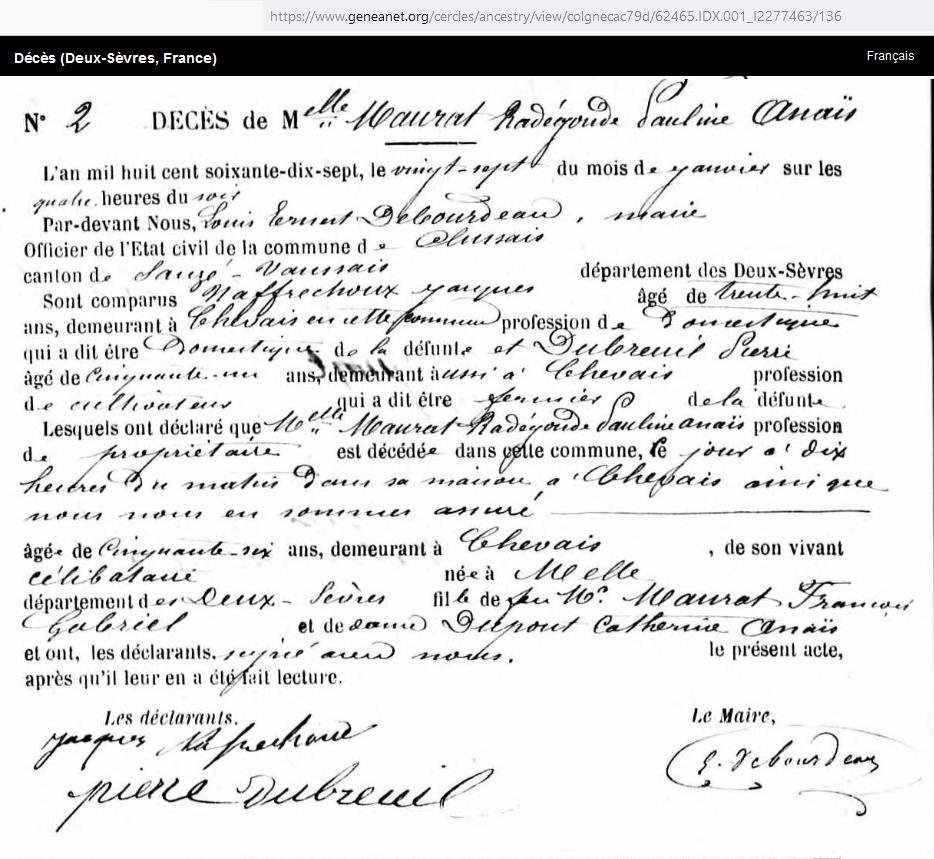 https://www.geneanet.org/cercles/ancestry/view/colgnecac79d/62465.IDX.001_I2277463/136
Décès (Deux-Sèvres, France) Français
N° 2 DECÈS de Melle Maurat Radégonde Pauline Anaïs
L'an mil huit cent soixante-dix-sept, le vingt-sept du mois de janvier sur les
quatre heures du soir
Par-devant Nous, Louis Ernest Debourdeau, maire
Officier de l'Etat civil de la commune de Clussais
canton de Sauzé-Vaussais département des Deux-Sèvres
Sont comparus Naffrechoux Jacques âgé de trente-huit
ans, demeurant à Chevais en cette commune profession de Domestique
qui a dit être Domestique de la défunte et Dubreuil Pierre
âgé de Cinquante-un ans, demeurant aussi à Chevais profession
de cultivateur qui a dit être fermier de la défunte
Lesquels ont déclaré que Melle Maurat Radégonde Pauline anaïs profession
de propriétaire est décédée dans cette commune, le jour à dix
heures du matin dans sa maison, à Chevais ainsi que
nous nous en sommes assuré
âgée de Cinquante-six ans, demeurant à Chevais, de son vivant
célibataire née à Melle
département des Deux-Sèvres fille de feu Mr. Maurat François
Gabriel et de dame Dupont Catherine Anaïs
et ont, les déclarants, signé avec nous. le présent acte,
après qu'il leur en a été fait lecture.
Les déclarants, Le Maire,
Jacques Nafrechoux E. Debourdeau
pierre Dubreuil